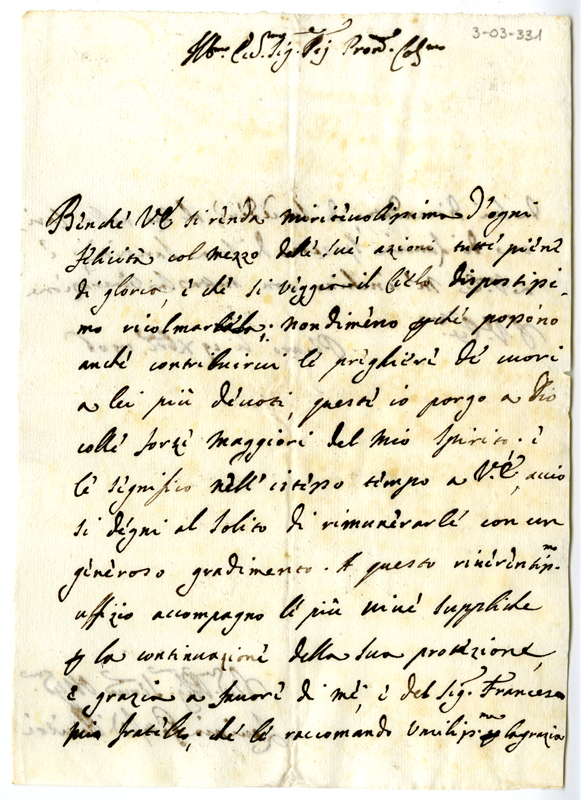 3-03-331
Ill.mo Ecc.mo Sig.re Sig. Pron. Col.mo
Benché V.E. si renda meritevolissima d'ogni
felicità col mezzo delle sue azioni tutte piene
di gloria, e che si veggia il Cielo dispostissi-
mo ricolmar; nondimeno perché possono
anche contribuirvi le preghiere de cuori
a lei più devoti, queste io porgo a Dio
colle forze maggiori del mio spirito. e
le significo nell'istesso tempo a V.E., accio
si degni al solito di rimunerarle con un
generoso gradimento. A questo riverentiss.mo
uffizio accompagno le più vive suppliche
per la continuazione della sua protezione,
e grazia a favore di me, e del Sig. Francesco
mio fratello, che le raccomando umiliss.me la grazia